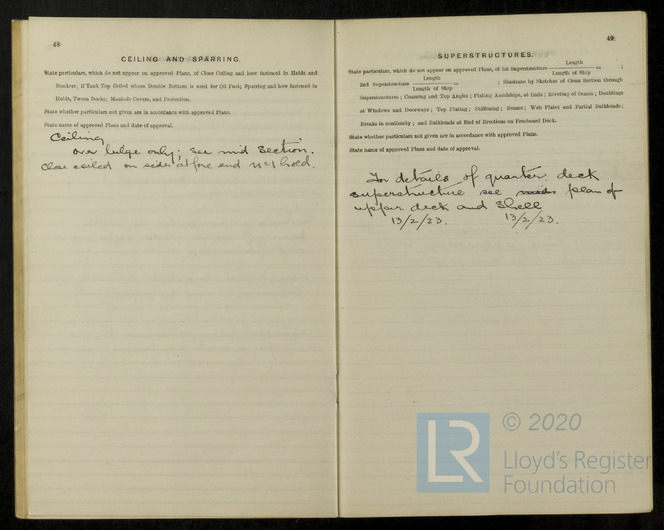 48
CEILING AND SPARRING.
State particulars, which do not appear on approved Plans, of Close Ceiling and how fastened in Holds and
Bunker, if Tank Top Ceiled whose Double Bottom is used for Oil Fuel; Sparring and how fastened in
Holds, Tween Decks; Manhole Covers, and Protection.
State whether particulars not given are in accordance with approved Plans.
State name of approved Plans and date of approval.
Ceiling
over bilge only; see mid section.
Close ceiled on sides at fore end No 1 hold.
49
SUPERSTRUCTURES.
State particulars, which do not appear on approved Plans, of 1st Superstructure Length / Length of Ship = ;
2nd Superstructure Length / Length of Ship = ; illustrate by Sketches of Cross Section through
Superstructures; Coaming and Top Angles; Plating Amidships, at Ends; Riveting of Seams; Doublings
at Windows and Doorways; Top Plating; Stiffening; Beams; Web Plates and Partial Bulkheads;
Breaks in continuity; and Bulkheads at End of Erections on Freeboard Deck.
State whether particulars not given are in accordance with approved Plans.
State name of approved Plans and date of approval.
For details of quarter deck
superstructure see plan of
upper deck and Shell
13/2/23. 13/2/23.
LR
© 2020
Lloyd's Register
Foundation